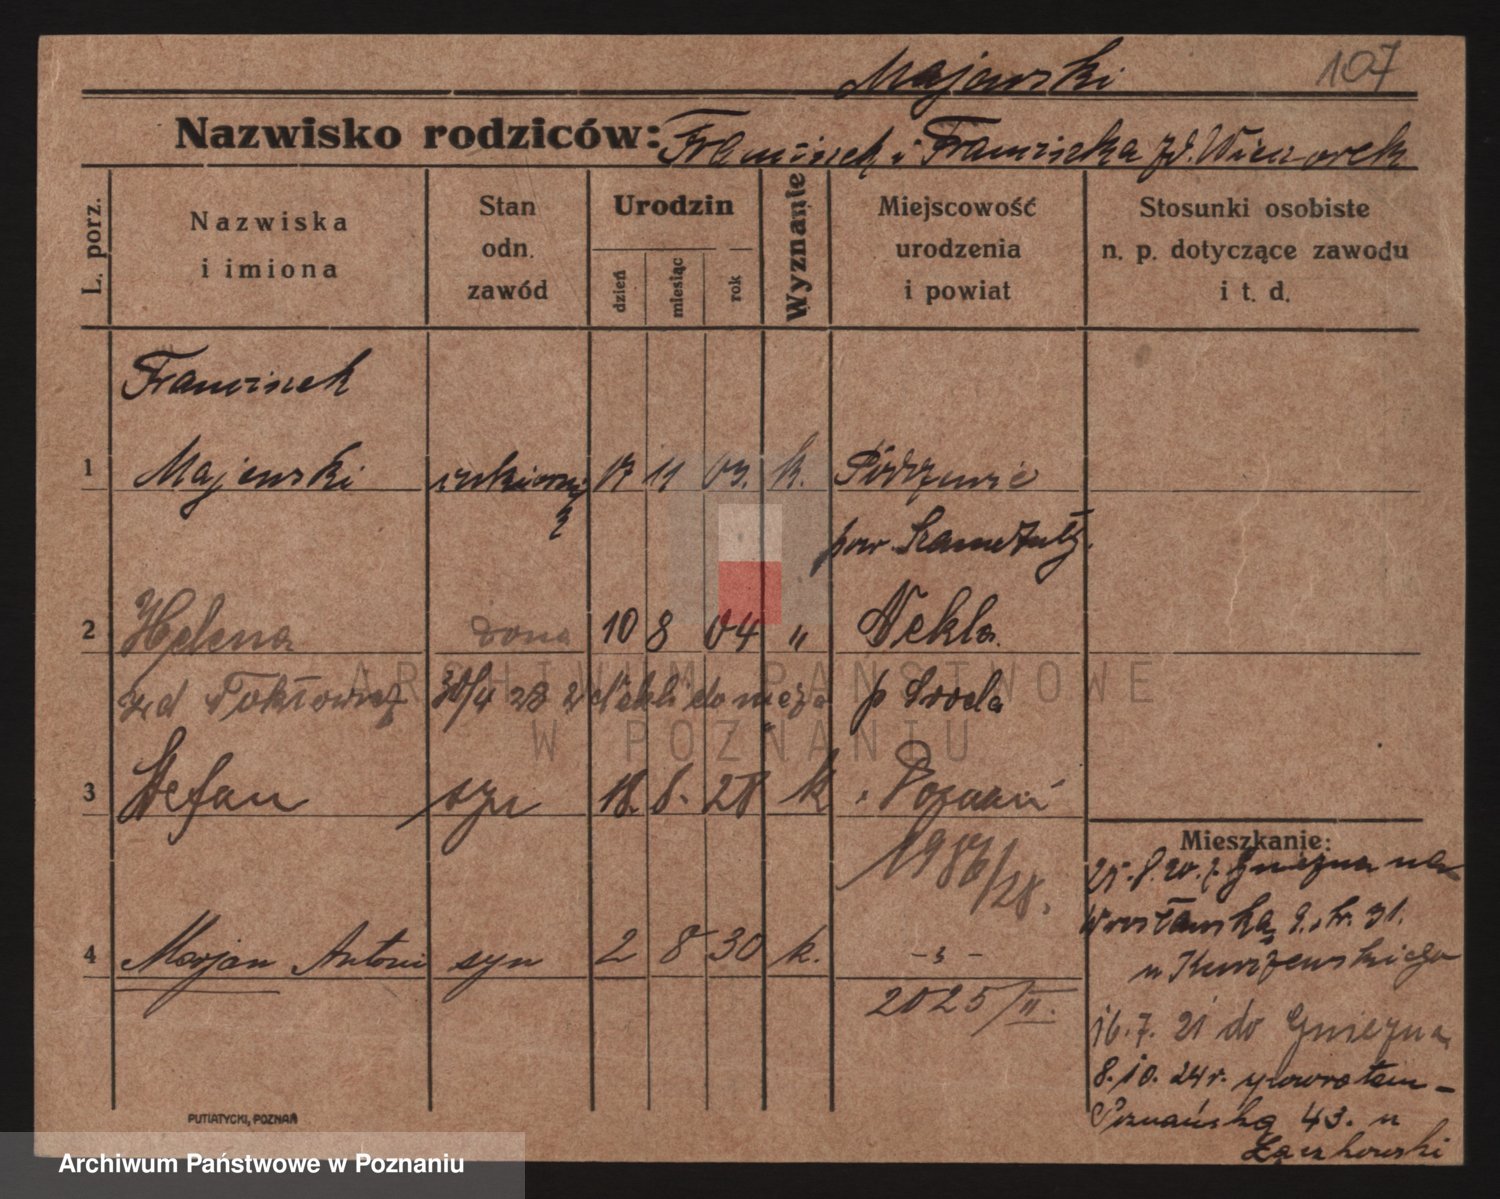 Majewski
107
Nazwisko rodziców: Franciszek i Franciszka zd. Wieczorek
L. porz.
Nazwiska
i imiona
Stan
odn.
zawód
Urodzin
dzień
miesiąc
rok
Wyznanie
Miejscowość
urodzenia
i powiat
Stosunki osobiste
n. p. dotyczące zawodu
i t. d.
Franciszek
1 Majewski 17 11 03. k.
pow. Szamotuły.
2 Helena żona 10 8 04 " Nekla
zd 30/4 28 z Nekli do męża p Środa
3 Stefan syn 18. 6. 28 k. Poznań
1986/28.
4 Marjan Antoni syn 2 8 30 k. -"-
2025/II.
Mieszkanie:
25.8.20. z Gniezna na
Wrocławską g. str. 31.
u
16.7. 21 do Gniezna
8.10.24r. z powrotem -
Poznańska 43. u
Łączkowski
PUTIATYCKI, POZNAŃ
ARCHIWUM PAŃSTWOWE
W POZNANIU
Archiwum Państwowe w Poznaniu